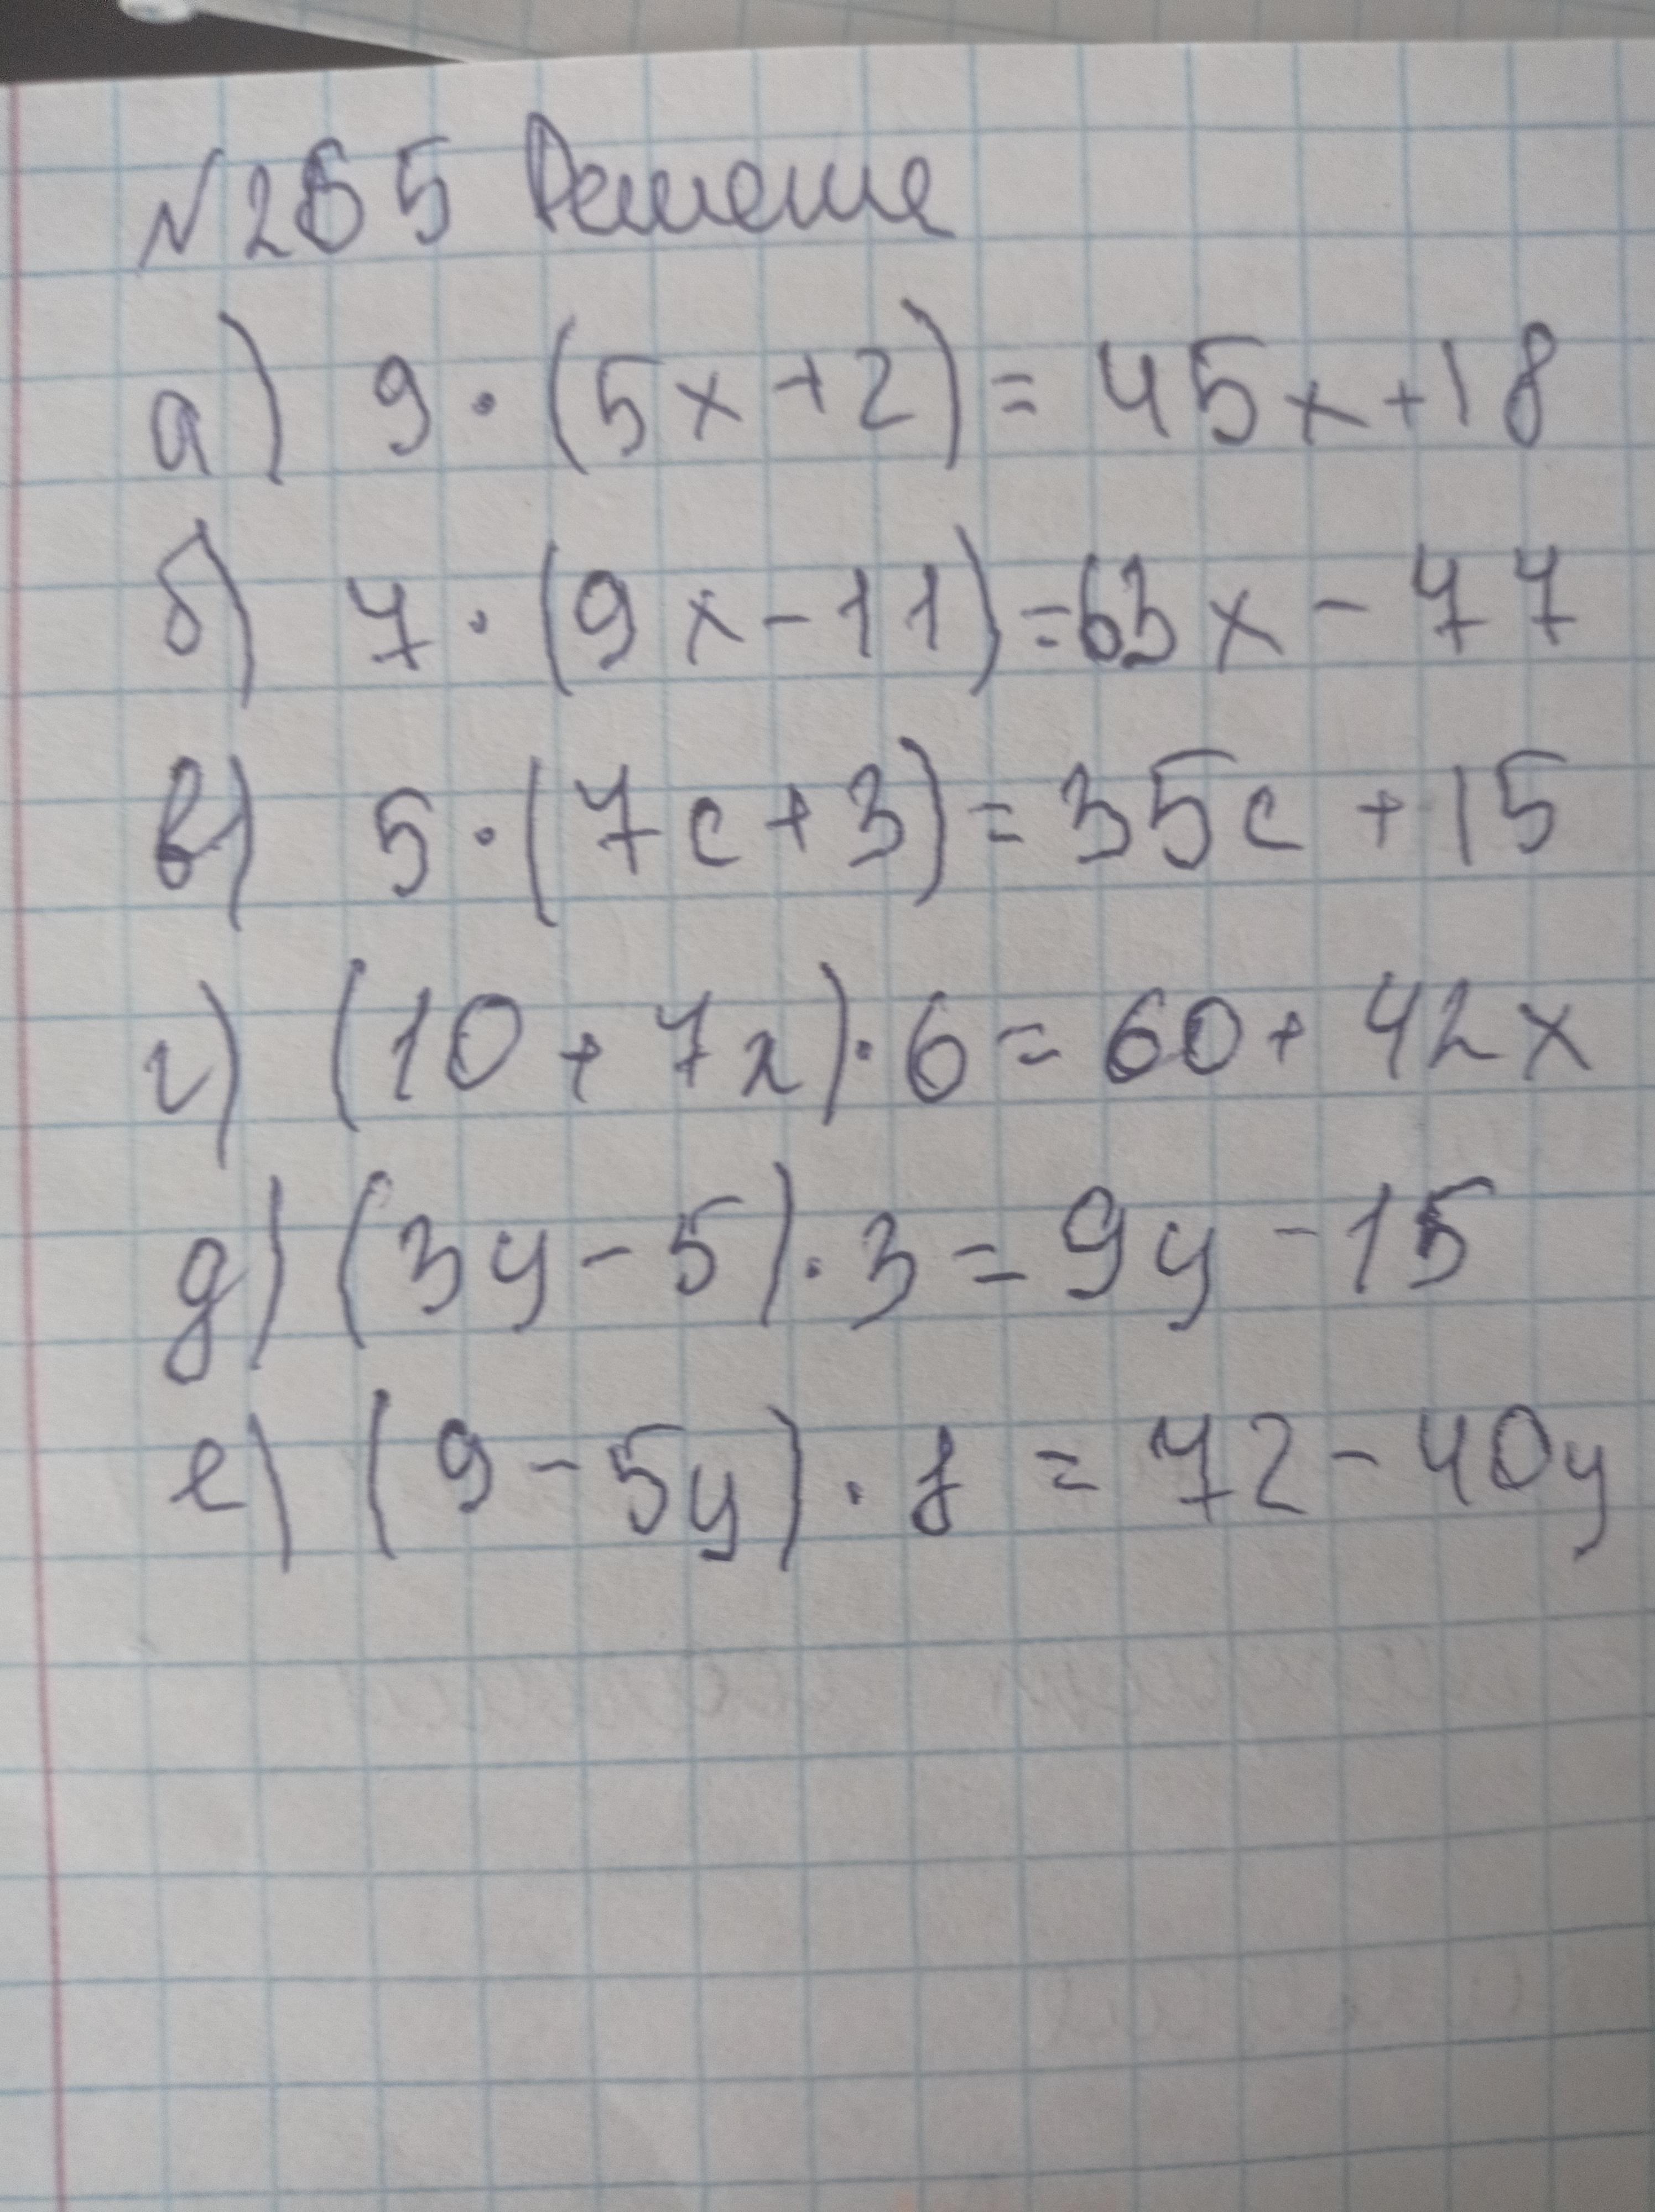 №265 Решение
а) 9·(5x+2)=45x+18
б) 7·(9x-11)=63x-77
в) 5·(7c+3)=35c+15
г) (10+7x)·6=60+42x
д) (3y-5)·3=9y-15
е) (9-5y)·8=72-40y